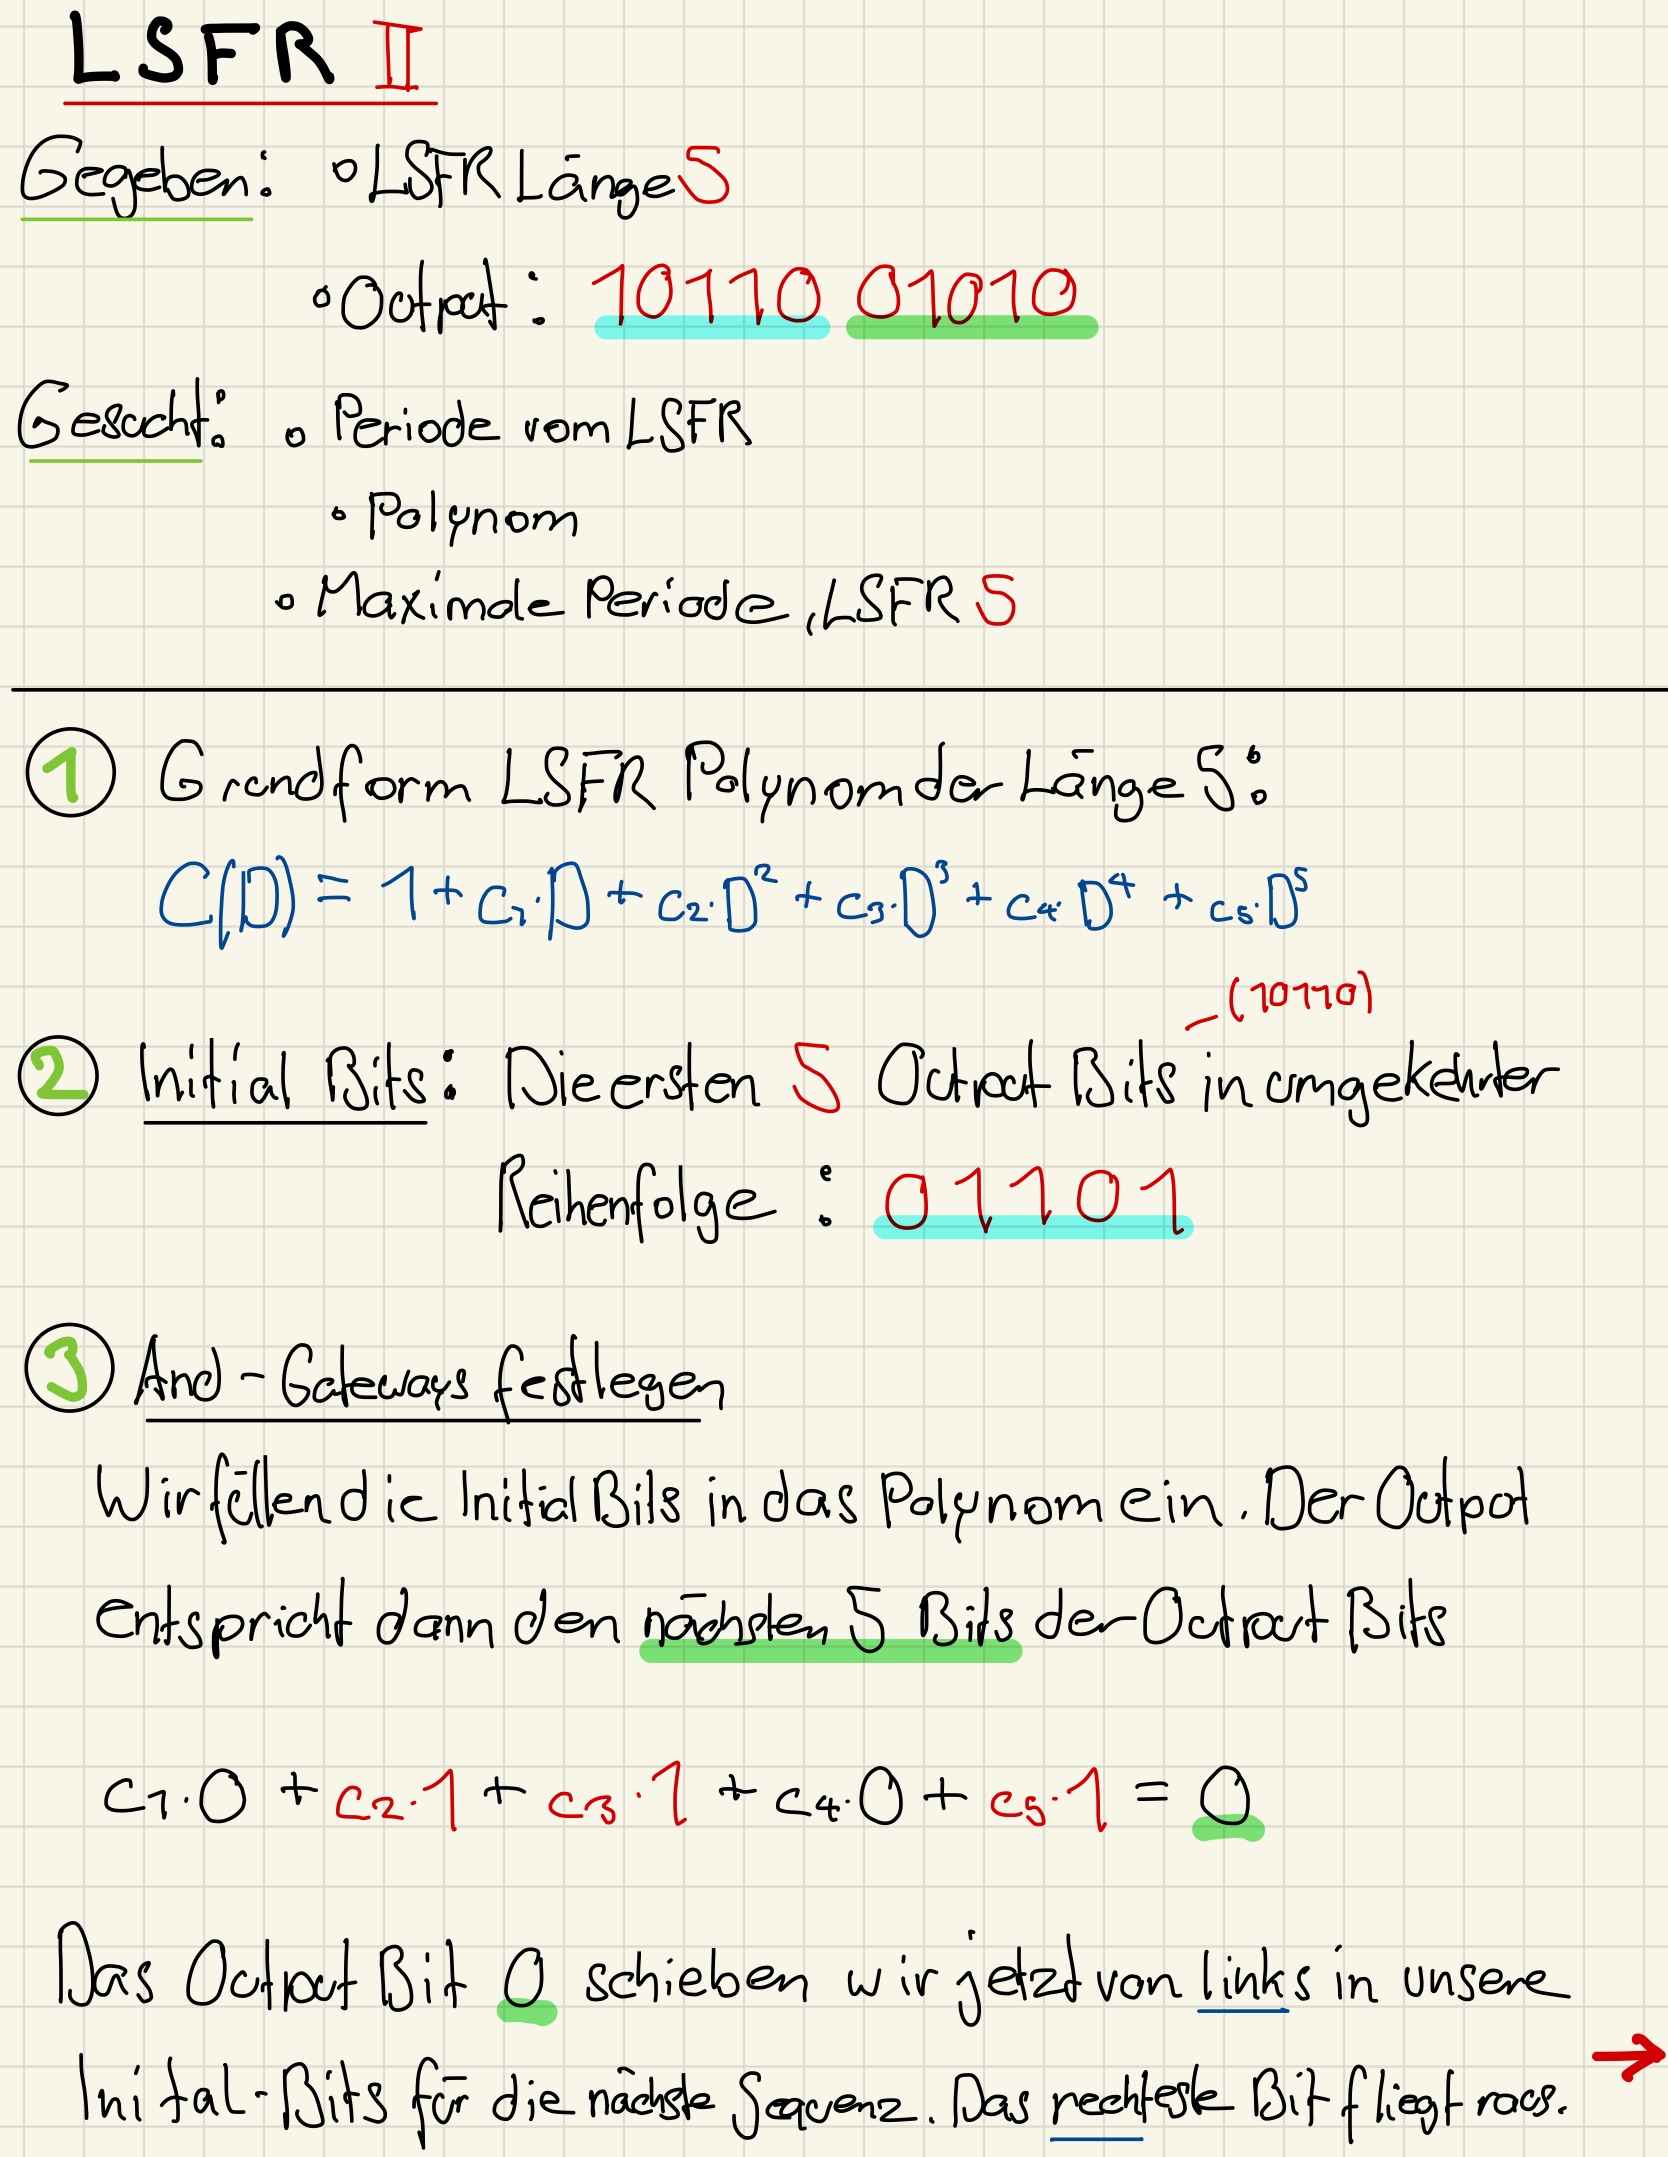 LSFR II
Gegeben: ∘ LSFR Länge 5
∘ Output: 10110 01010
Gesucht: ∘ Periode vom LSFR
∘ Polynom
∘ Maximale Periode, LSFR 5
1 Grundform LSFR Polynom der Länge 5:
C(D) = 1 + c₁·D + c₂·D² + c₃·D³ + c₄·D⁴ + c₅·D⁵
(10110)
2 Initial Bits: Die ersten 5 Output Bits in umgekehrter
Reihenfolge: 01101
3 And-Gateways festlegen
Wir füllen die Initial Bits in das Polynom ein. Der Output
entspricht dann den nächsten 5 Bits der Output Bits
c₁·0 + c₂·1 + c₃·1 + c₄·0 + c₅·1 = 0
Das Output Bit 0 schieben wir jetzt von links in unsere
Inital-Bits für die nächste Sequenz. Das rechteste Bit fliegt raus. →